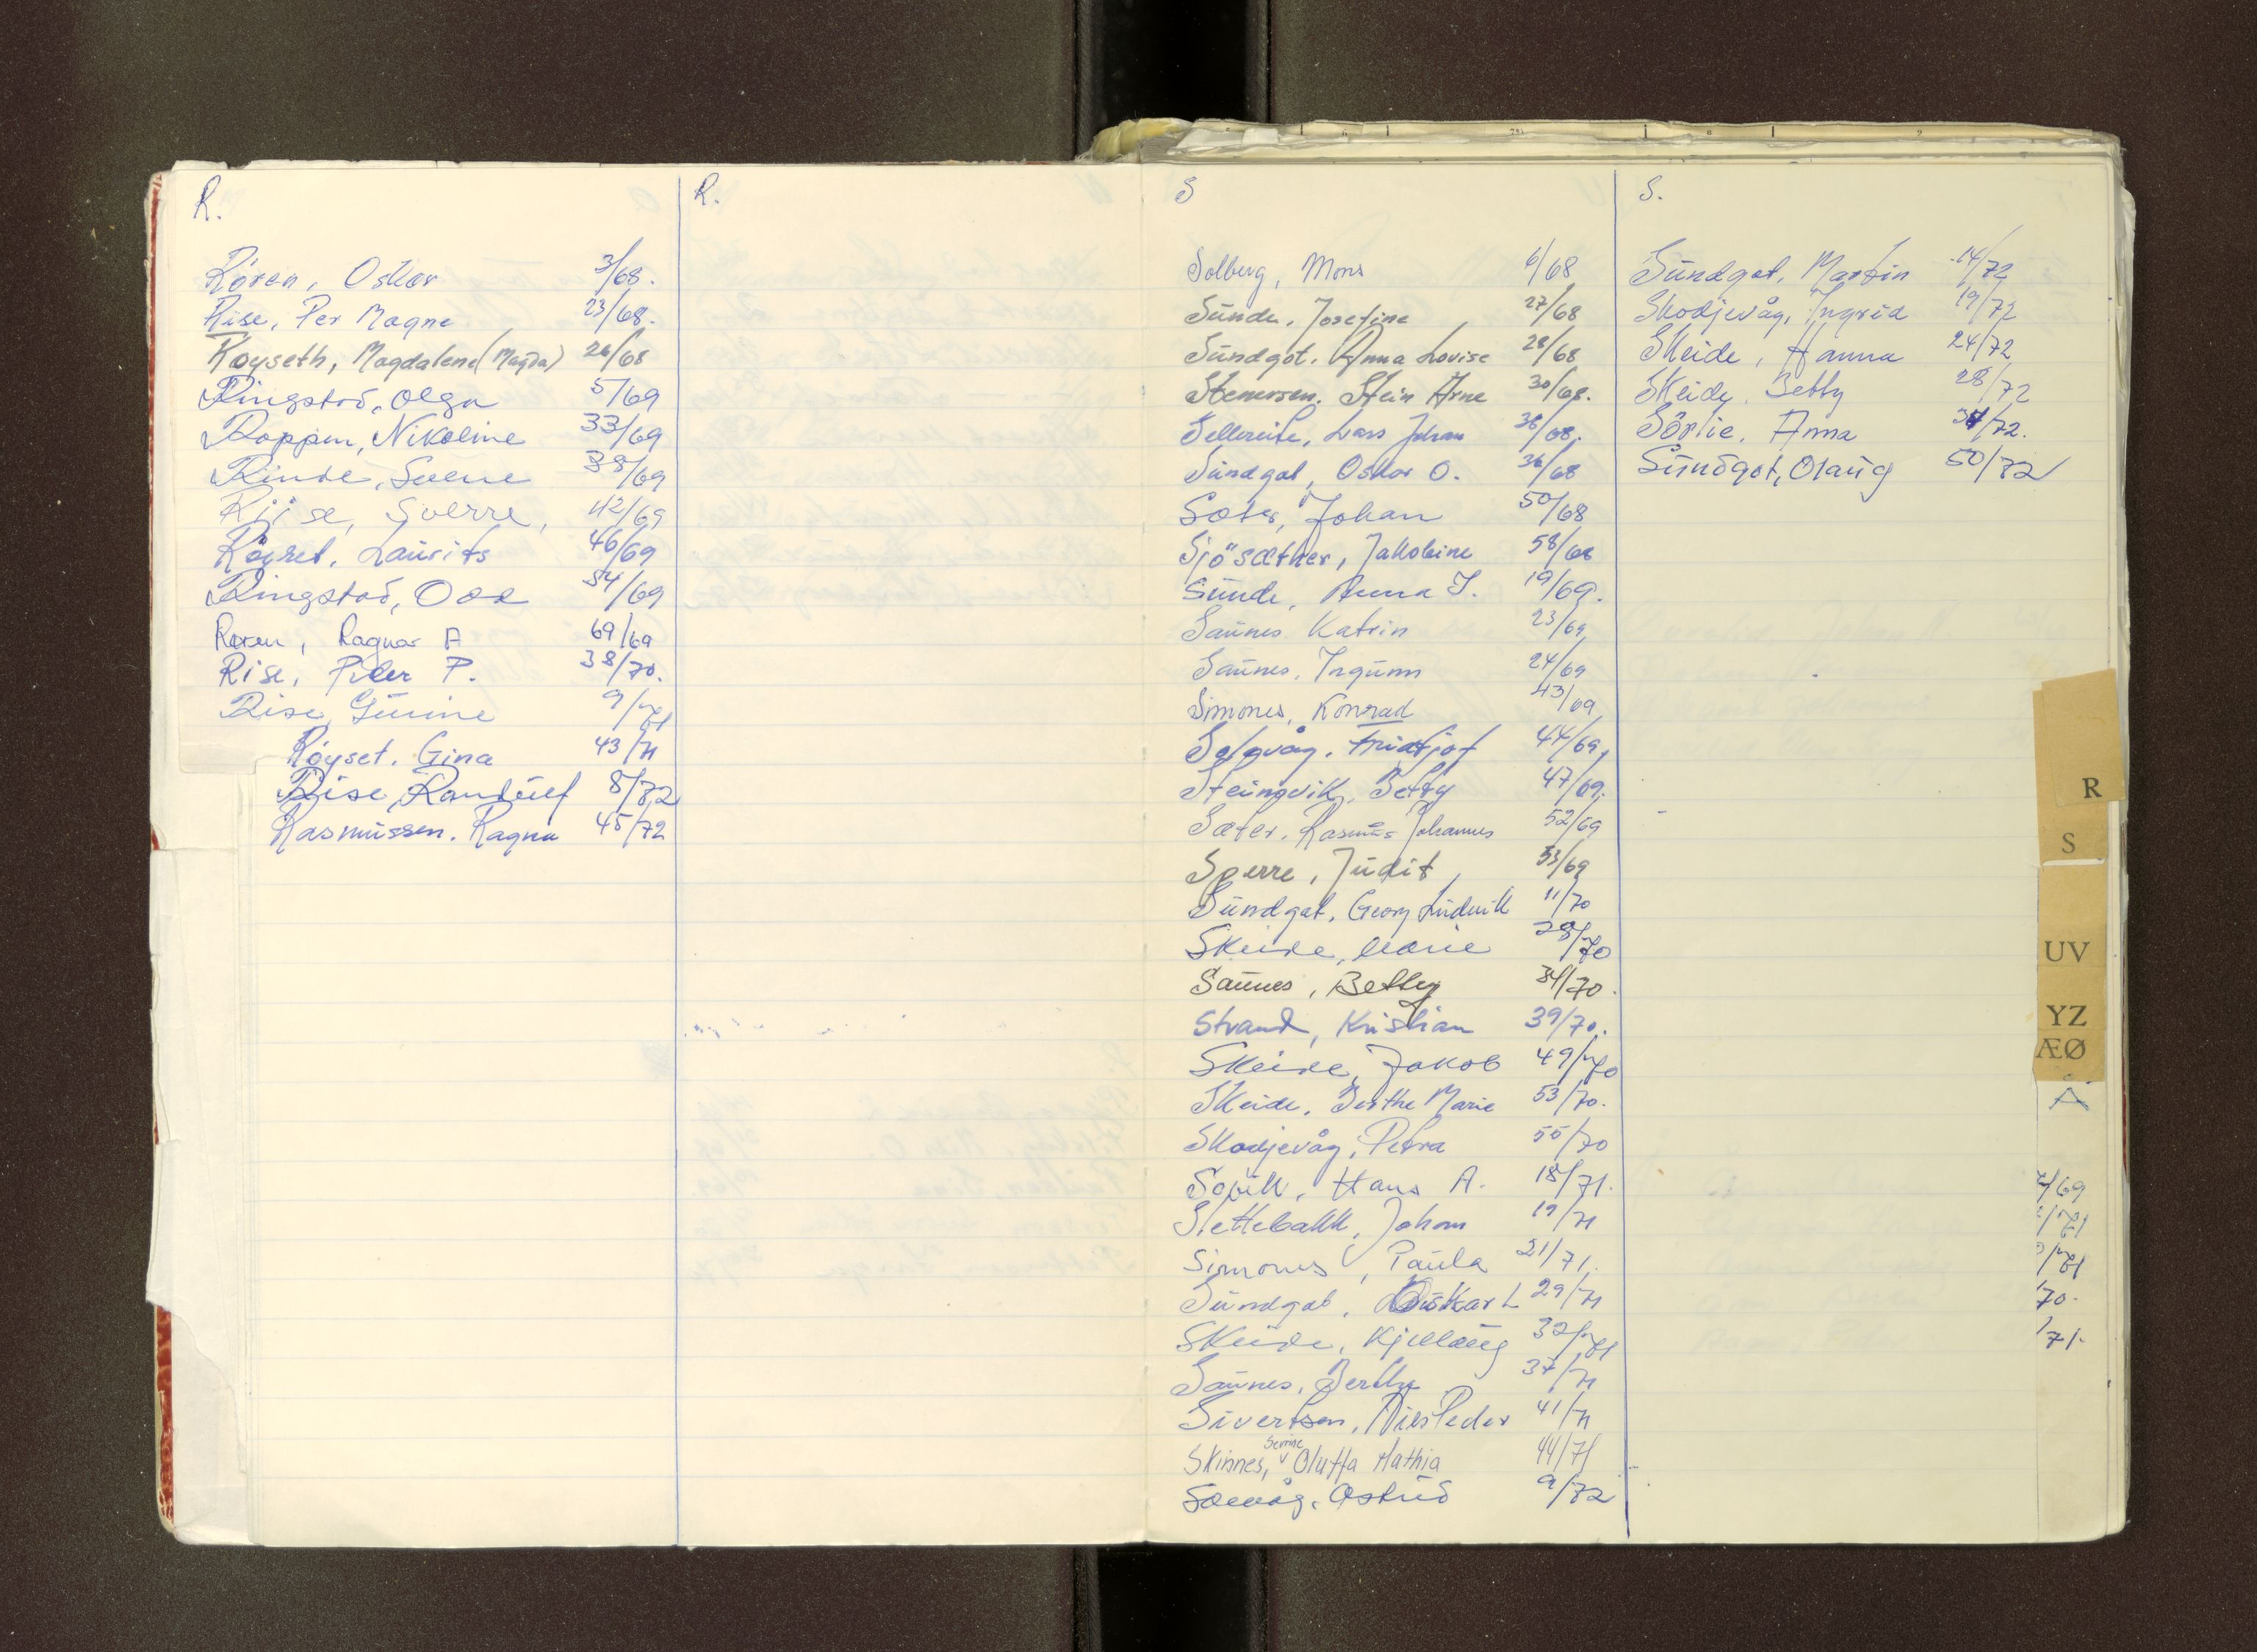 R.
Rören, Oskar 3/68.
Rise, Per Magne 23/68.
Røyseth, Magdalene (Magda) 26/68
Ringstad, Olga 5/69
Roppen, Nikoline 33/69
Rinde, Svene 38/69
Riise, Sverre, 42/69
Röyset, Laurits 46/69
Ringstad, Oda 54/69
Røren, Ragnar A 69/69
Rise, Peder P. 38/70.
Rise, Gurine 9/71
Röyset. Gina 43/71
Rise, Randulf 8/72
Rasmussen. Ragna 45/72
R.
S
Solberg, Mons 6/68
Sunde, Josefine 27/68
Sundgot. Anna Lovise 28/68
Stenersen. Stein Arne 30/68.
Sellereite, Lars Johan 36/68.
Sundgot, Oskar O. 36/68
Sæter, Johan 50/68
Sjösæther, Jakobine 58/68
Sunde, Anna J. 19/69.
Saunes Katrin 23/69
Saunes, Ingunn 24/69
Simones, Konrad 43/69
Solgvåg. Fridtjof 44/69,
Steingvik, Betty 47/69.
Sæter, Rasmus Johannes 52/69
Sperre, Judit 53/69
Sundgot, Georg Ludvik 11/70
Skeide, Marie 28/70
Saunes, Betty 34/70.
Strand, Kristian 39/70.
Skeide, Jakob 49/70
Skeide, Berthe Marie 53/70.
Skodjevåg, Petra 55/70
Sövik, Hans A. 18/71.
Slettebakk, Johan 19/71
Simones, Paula 21/71.
Sundgot, Oskar L 29/71
Skeide, Kjellaug 32/71
Saunes, Berthe 37/71
Sivertsen, Nils Peder 41/71
Serine
Skinnes, Olutta Mathia 44/71
Solevåg, Astrid 9/72
S.
Sundgot, Martin 14/72
Skodjevåg, Ingrid 19/72
Skeide, Hanna 24/72
Skeide, Betty 28/72
Sörlie, Anna 34/72.
Sundgot, Olaug 50/72
R
S
UV
YZ
ÆØ
Å
/69
/71
/71
70.
71.